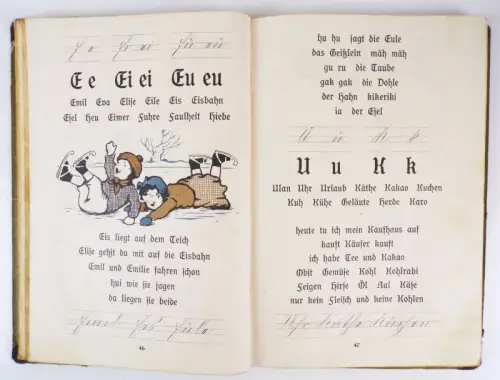 E e Ei ei Eu eu
E e Ei ei Eu eu
Emil Eva Elise Eile Eis Eisbahn
Esel Heu Eimer Fuhre Faulheit Hiebe
Eis liegt auf dem Teich
Elise gehst du mit auf die Eisbahn
Emil und Emilie fahren schon
hui wie sie jagen
da liegen sie beide
Emil Eis Eule
46
hu hu sagt die Eule
das Geißlein mäh mäh
gu ru die Taube
gak gak die Dohle
der Hahn kikeriki
ia der Esel
U u K k
U u K k
Ulan Uhr Urlaub Käthe Kakao Kuchen
Kuh Kühe Geläute Herde Karo
heute tu ich mein Kaufhaus auf
kauft Käufer kauft
ich habe Tee und Kakao
Obst Gemüse Kohl Kohlrabi
Feigen Hirse Öl Aal Käse
nur kein Fleisch und keine Kohlen
Uhr Käthe Kuchen
47